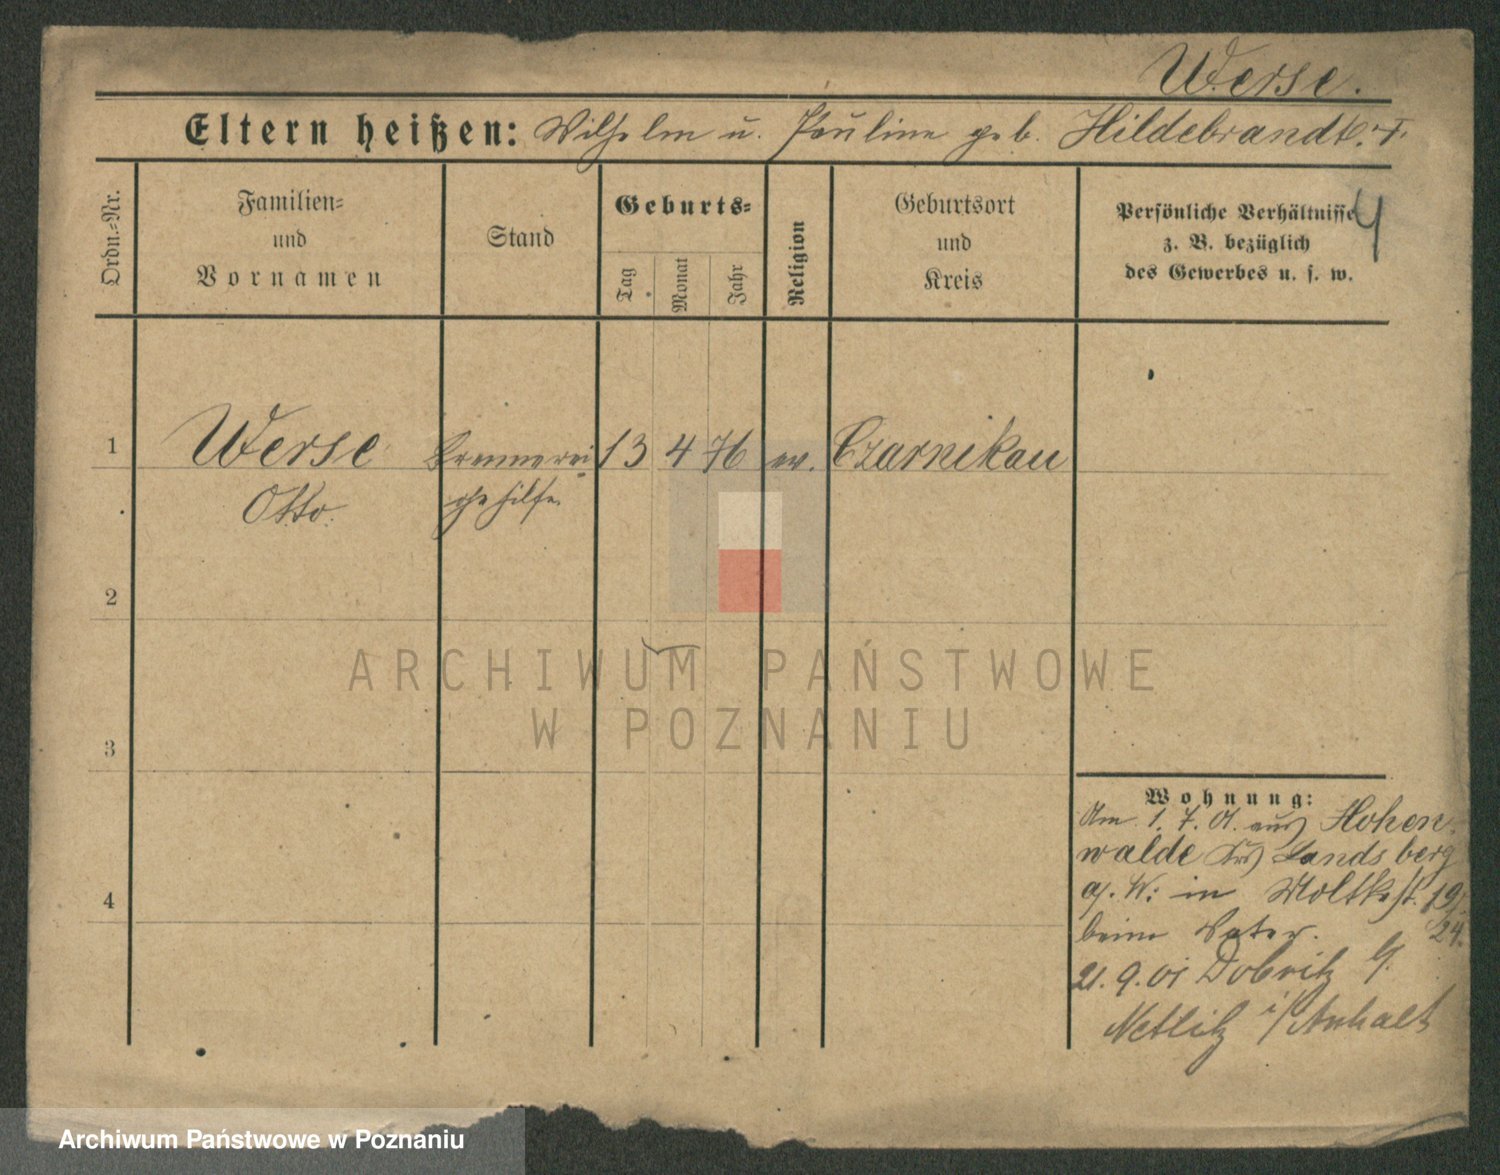 Werse.
Eltern heißen: Wilhelm u. Pauline geb. Hildebrandt.
Ordn.-Nr.
Familien-
und
Vornamen
Stand
Geburts-
Tag
Monat
Jahr
Religion
Geburtsort
und
Kreis
Persönliche Verhältnisse
z. B. bezüglich
des Gewerbes u. s. w.
4
1 Werse Brennerei 13 4 76 ev. Czarnikau
Otto. gehilfe.
2
3
4
Wohnung:
Am 1. 7. 01. aus Hohen
walde Krs Landsberg
a/. W. in Moltkest. 19/
beim Vater. 24.
21. 9. 01 Dobritz
Netlitz i/Anhalt
ARCHIWUM PAŃSTWOWE
W POZNANIU
Archiwum Państwowe w Poznaniu